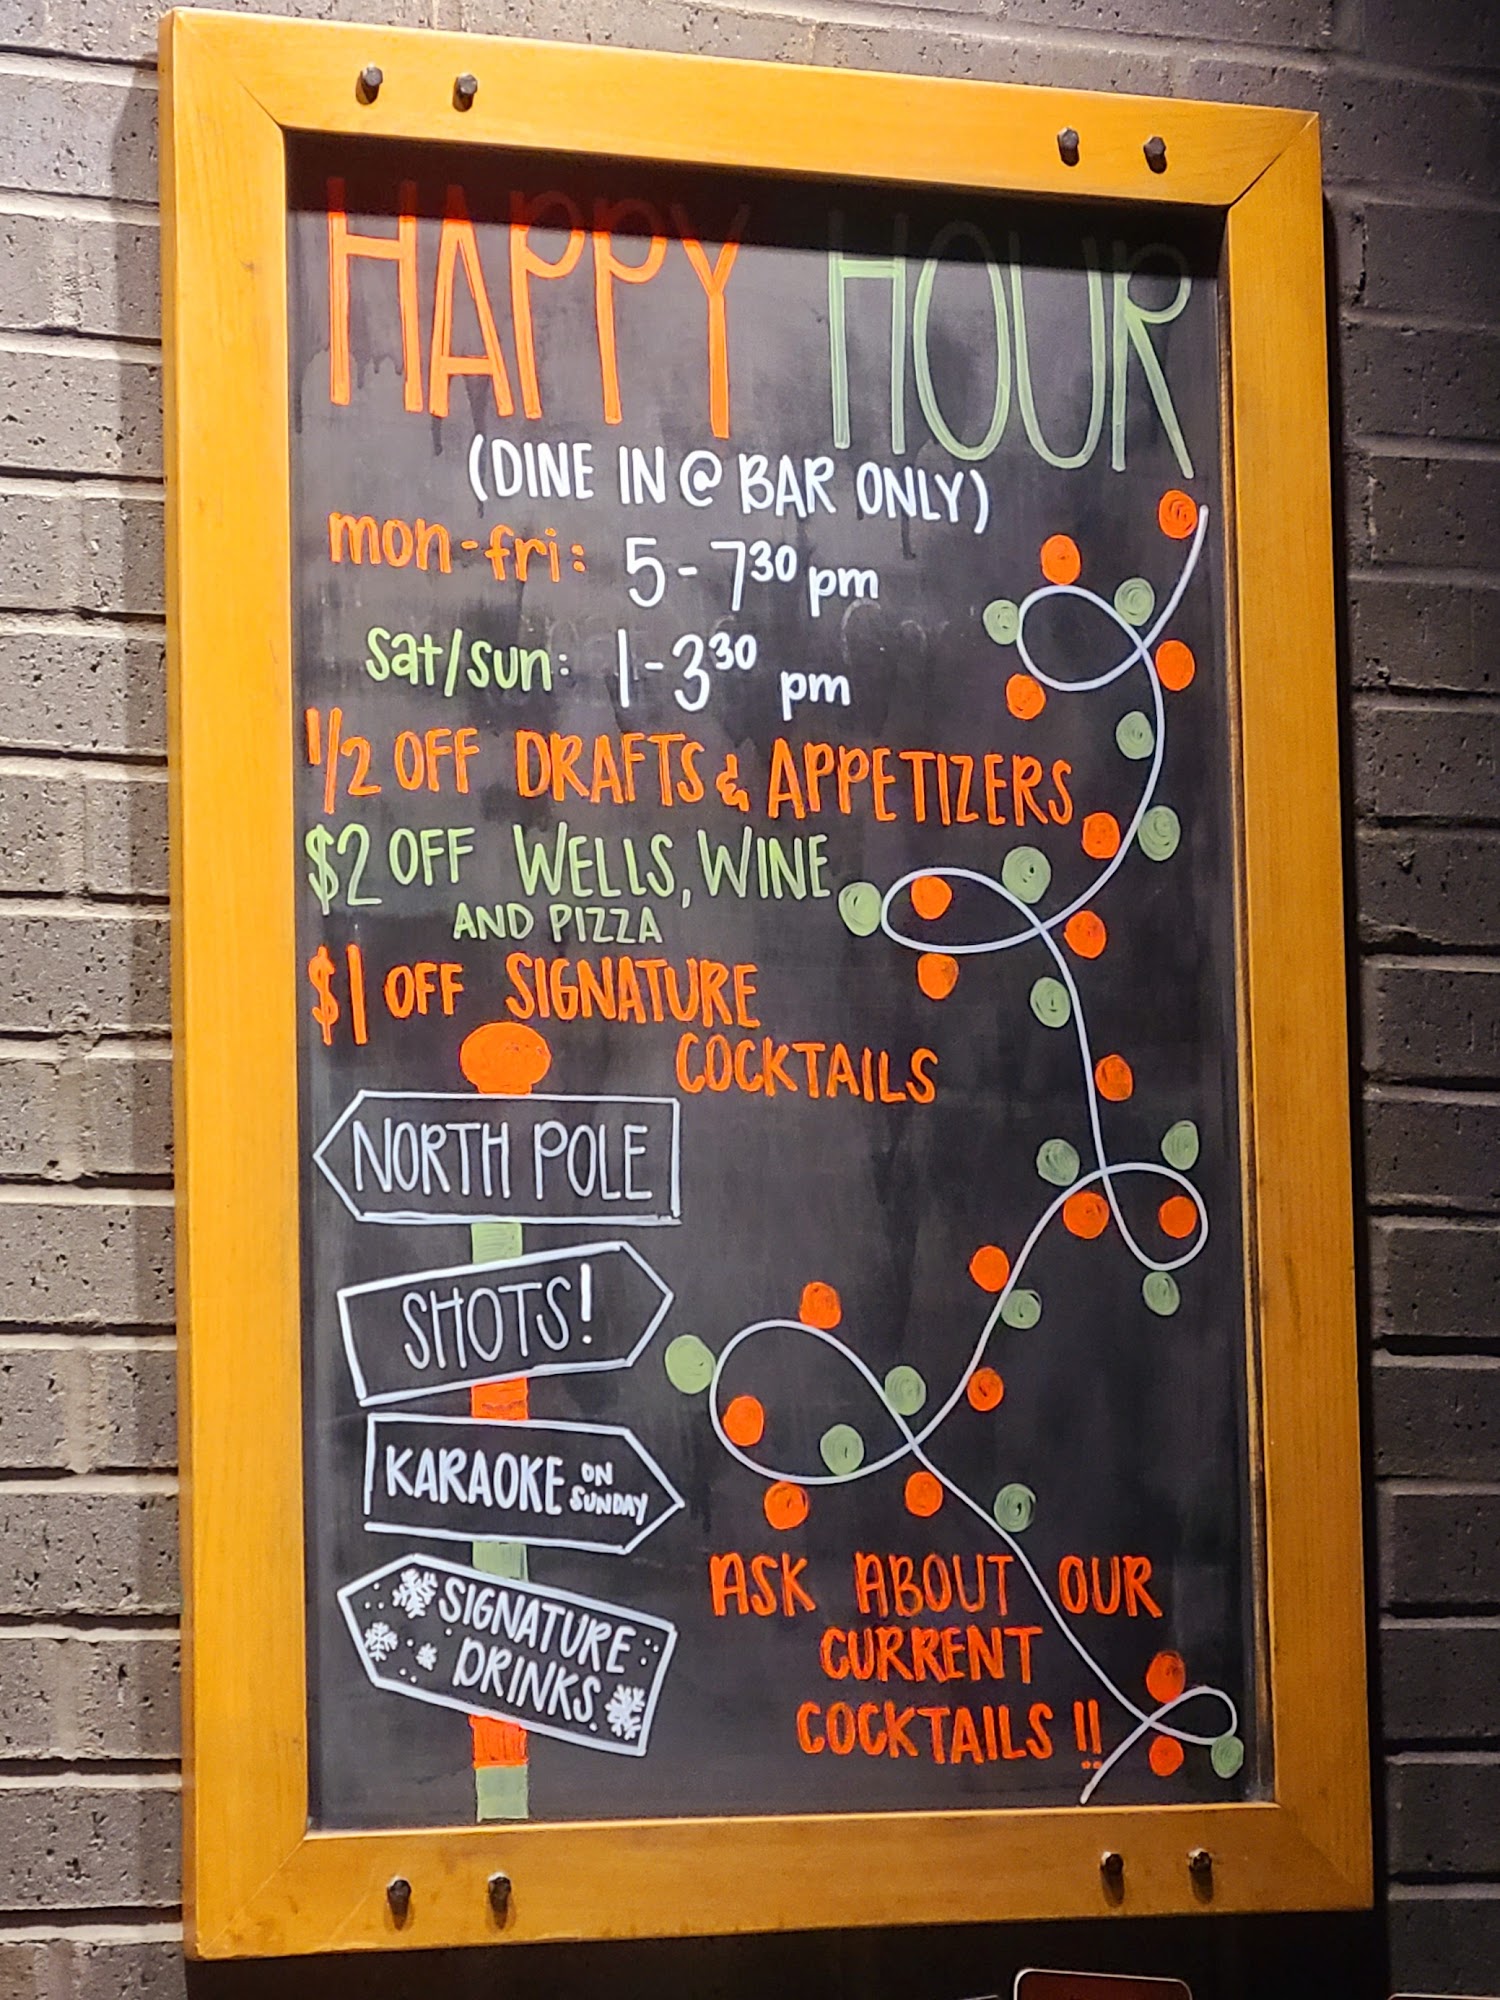 HAPPY HOUR
(DINE IN @ BAR ONLY)
mon-fri: 5-7³⁰ pm
sat/sun: 1-3³⁰ pm
1/2 OFF DRAFTS & APPETIZERS
$2 OFF WELLS, WINE
AND PIZZA
$1 OFF SIGNATURE
COCKTAILS
NORTH POLE
SHOTS!
KARAOKE ON
SUNDAY
SIGNATURE
DRINKS
ASK ABOUT OUR
CURRENT
COCKTAILS !!